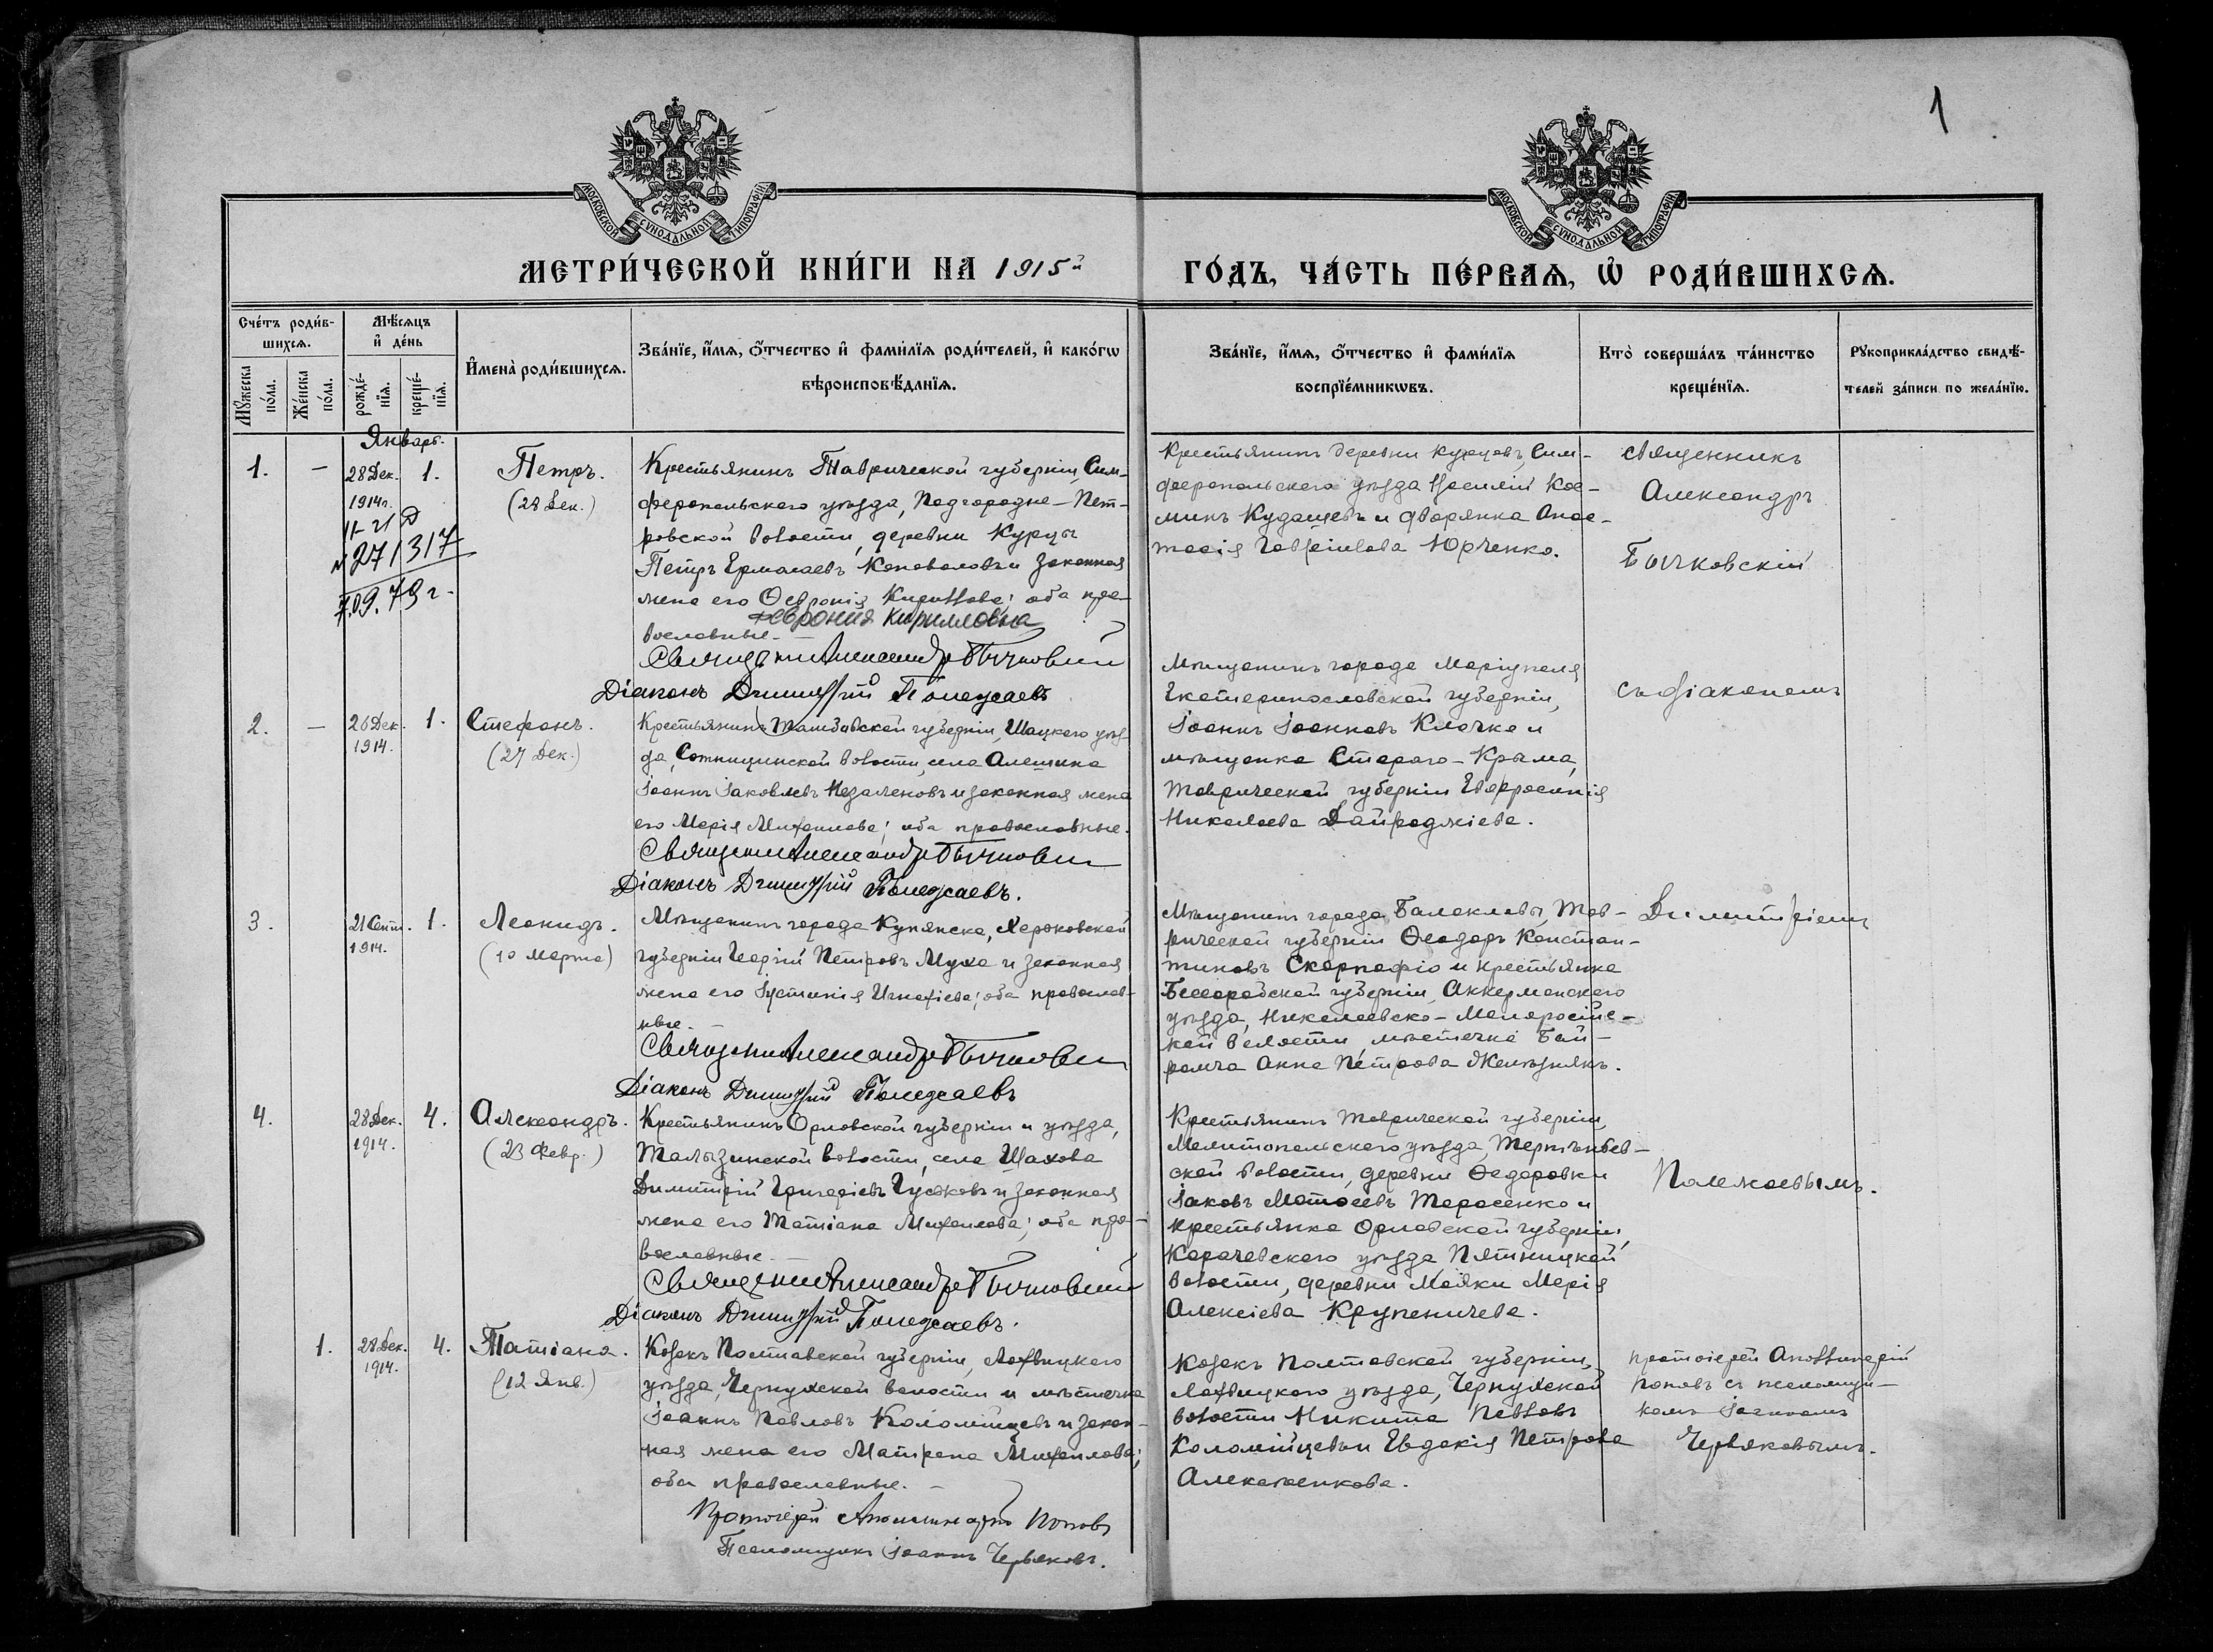 1
МОСКОВСКОЙ СѴНОДАЛЬНОЙ ТИПОГРАФІИ
МОСКОВСКОЙ СѴНОДАЛЬНОЙ ТИПОГРАФІИ
МЕТРИ́ЧЕСКОЙ КНИ́ГИ НА 1915й
ГО́ДЪ, ЧА́СТЬ ПЕ́РВАѦ, Ѡ҆ РОДИ́ВШИХСѦ.
Сче́тъ роди́в-
шихсѧ.
Мꙋ́жеска
по́ла.
Же́нска
по́ла.
Мѣ́сѧцъ
и҆ де́нь
рожде́-
нїѧ.
креще́-
нїѧ.
И҆мена̀ роди́вшихсѧ.
Зва́нїе, и҆́мѧ, ѻ҆́тчество и҆ фами́лїѧ роди́телей, и҆ како́гѡ
вѣроисповѣ́данїѧ.
Зва́нїе, и҆́мѧ, ѻ҆́тчество и҆ фами́лїѧ
воспрїе́мникѡвъ.
Кто̀ соверша́лъ та́инство
креще́нїѧ.
Рꙋкоприкла́дство свидѣ́-
телей за́писи по жела́нїю.
Январь.
1.
—
28 Дек.
1914 г.
1.
II-21 Д
№ 271317
7.09.79 г.
Петръ.
(28 Дек.)
Крестьянинъ Таврической губерніи, Сим-
феропольскаго уѣзда, Подгородне-Пет-
ровской волости, деревни Курцы
Петръ Ермолаевъ Коноваловъ и законная
жена его Ѳевронія Кириллова; оба пра-
Феврония Кирилловна
вославные.
Священникъ Александръ Бычковскій
Діаконъ Димитрій Полежаевъ
Крестьянинъ деревни Курцовъ, Сим-
феропольскаго уѣзда Василій Кос-
минъ Кудащевъ и дворянка Анас-
тасія Гавріилова Юрченко.
Священникъ
Александръ
Бычковскій
съ діакономъ
Димитріемъ
Полежаевымъ.
2.
—
26 Дек.
1914.
1.
Стефанъ.
(27 Дек.)
Крестьянинъ Тамбовской губерніи, Шацкаго уѣз-
да, Сотницинской волости, села Алешина
Іоаннъ Іаковлевъ Незаленовъ и законная жена
его Марія Михаилова; оба православные.
Священникъ Александръ Бычковскій
Діаконъ Димитрій Полежаевъ.
Мѣщанинъ города Маріуполя,
Екатеринославской губерніи,
Іоаннъ Іоанновъ Клочко и
мѣщанка Стараго-Крыма,
Таврической губерніи Евфросинія
Николаева Дайраджіева.
3.
21 Сент.
1914.
1.
Леонидъ.
(10 Марта)
Мѣщанинъ города Купянска, Харьковской
губерніи Георгій Петровъ Муха и законная
жена его Іустинія Игнатіева; оба православ-
ные.
Священникъ Александръ Бычковскій
Діаконъ Димитрій Полежаевъ
Мѣщанинъ города Балаклавы, Тав-
рической губерніи Ѳеодоръ Констан-
тиновъ Скарлафіо и крестьянка
Бессарабской губерніи, Аккерманскаго
уѣзда, Николаевско-Малоросійс-
кой волости, мѣстечка Бай-
рамча Анна Петрова Желѣзнякъ.
4.
28 Дек.
1914.
4.
Александръ.
(23 Февр.)
Крестьянинъ Орловской губерніи и уѣзда,
Талызинской волости, села Шахова
Димитрій Григоріевъ Гусаковъ и законная
жена его Татіана Михаилова; оба пра-
вославные.
Священникъ Александръ Бычковскій
Діаконъ Димитрій Полежаевъ.
Крестьянинъ Таврической губерніи,
Мелитопольскаго уѣзда, Терпѣньев-
ской волости, деревни Ѳедоровки
Іаковъ Матѳеевъ Тарасенко и
крестьянка Орловской губерніи,
Карачевскаго уѣзда Пятницкой
волости, деревни Маяки Марія
Алексіева Крупеничева.
1.
28 Дек.
1914.
4.
Татіана.
(12 Янв.)
Козакъ Полтавской губерніи, Лохвицкаго
уѣзда, Чернухской волости и мѣстечка
Іоаннъ Павловъ Коломійцевъ и закон-
ная жена его Матрена Михаилова;
оба православные.
Протоіерей Аполлинарій Поповъ
Псаломщикъ Іоаннъ Червяковъ.
Козакъ Полтавской губерніи,
Лохвицкаго уѣзда, Чернухской
волости Никита Павловъ
Коломійцевъ и Евдокія Петрова
Алексѣенкова.
Протоіерей Аполлинарій
Поповъ съ псаломщи-
комъ Іоанномъ
Червяковымъ.